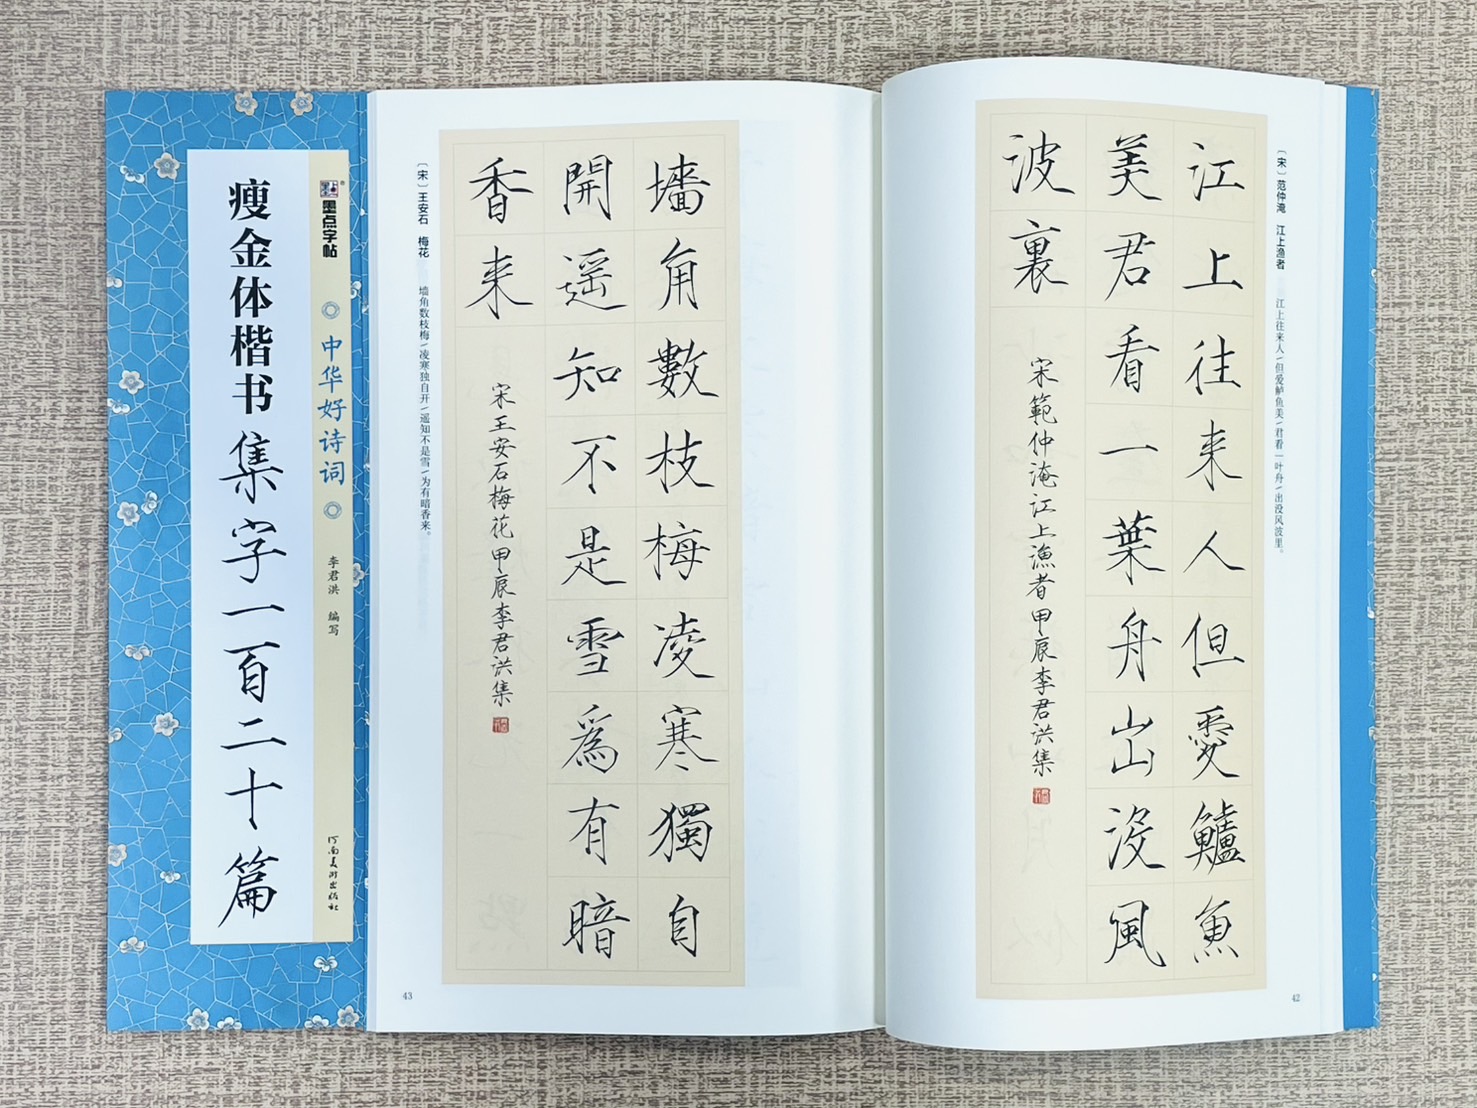 瘦金体楷书集字一百二十篇
墨点字帖
中华好诗词
李君洪 编写
河南美术出版社
〔宋〕范仲淹 江上渔者
江上往来人/但爱鲈鱼美/君看一叶舟/出没风波里。
江上往来人但愛鱸魚
美君看一葉舟出没風
波裏
宋範仲淹江上漁者甲辰李君洪集
42
〔宋〕王安石 梅花
墙角数枝梅/凌寒独自开/遥知不是雪/为有暗香来。
墻角數枝梅凌寒獨自
開遥知不是雪爲有暗
香来
宋王安石梅花甲辰李君洪集
43